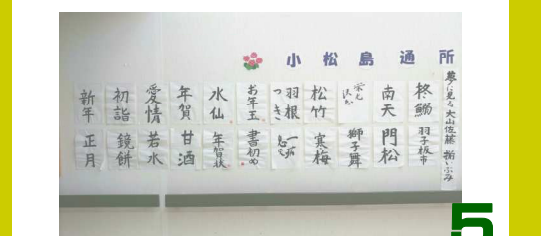 小松島通所
柊鰯
羽子板市
南天
門松
獅子舞
松竹
寒梅
羽根つき
お年玉
書初め
水仙
年賀状
年賀
甘酒
愛情
若水
初詣
鏡餅
新年
正月
5